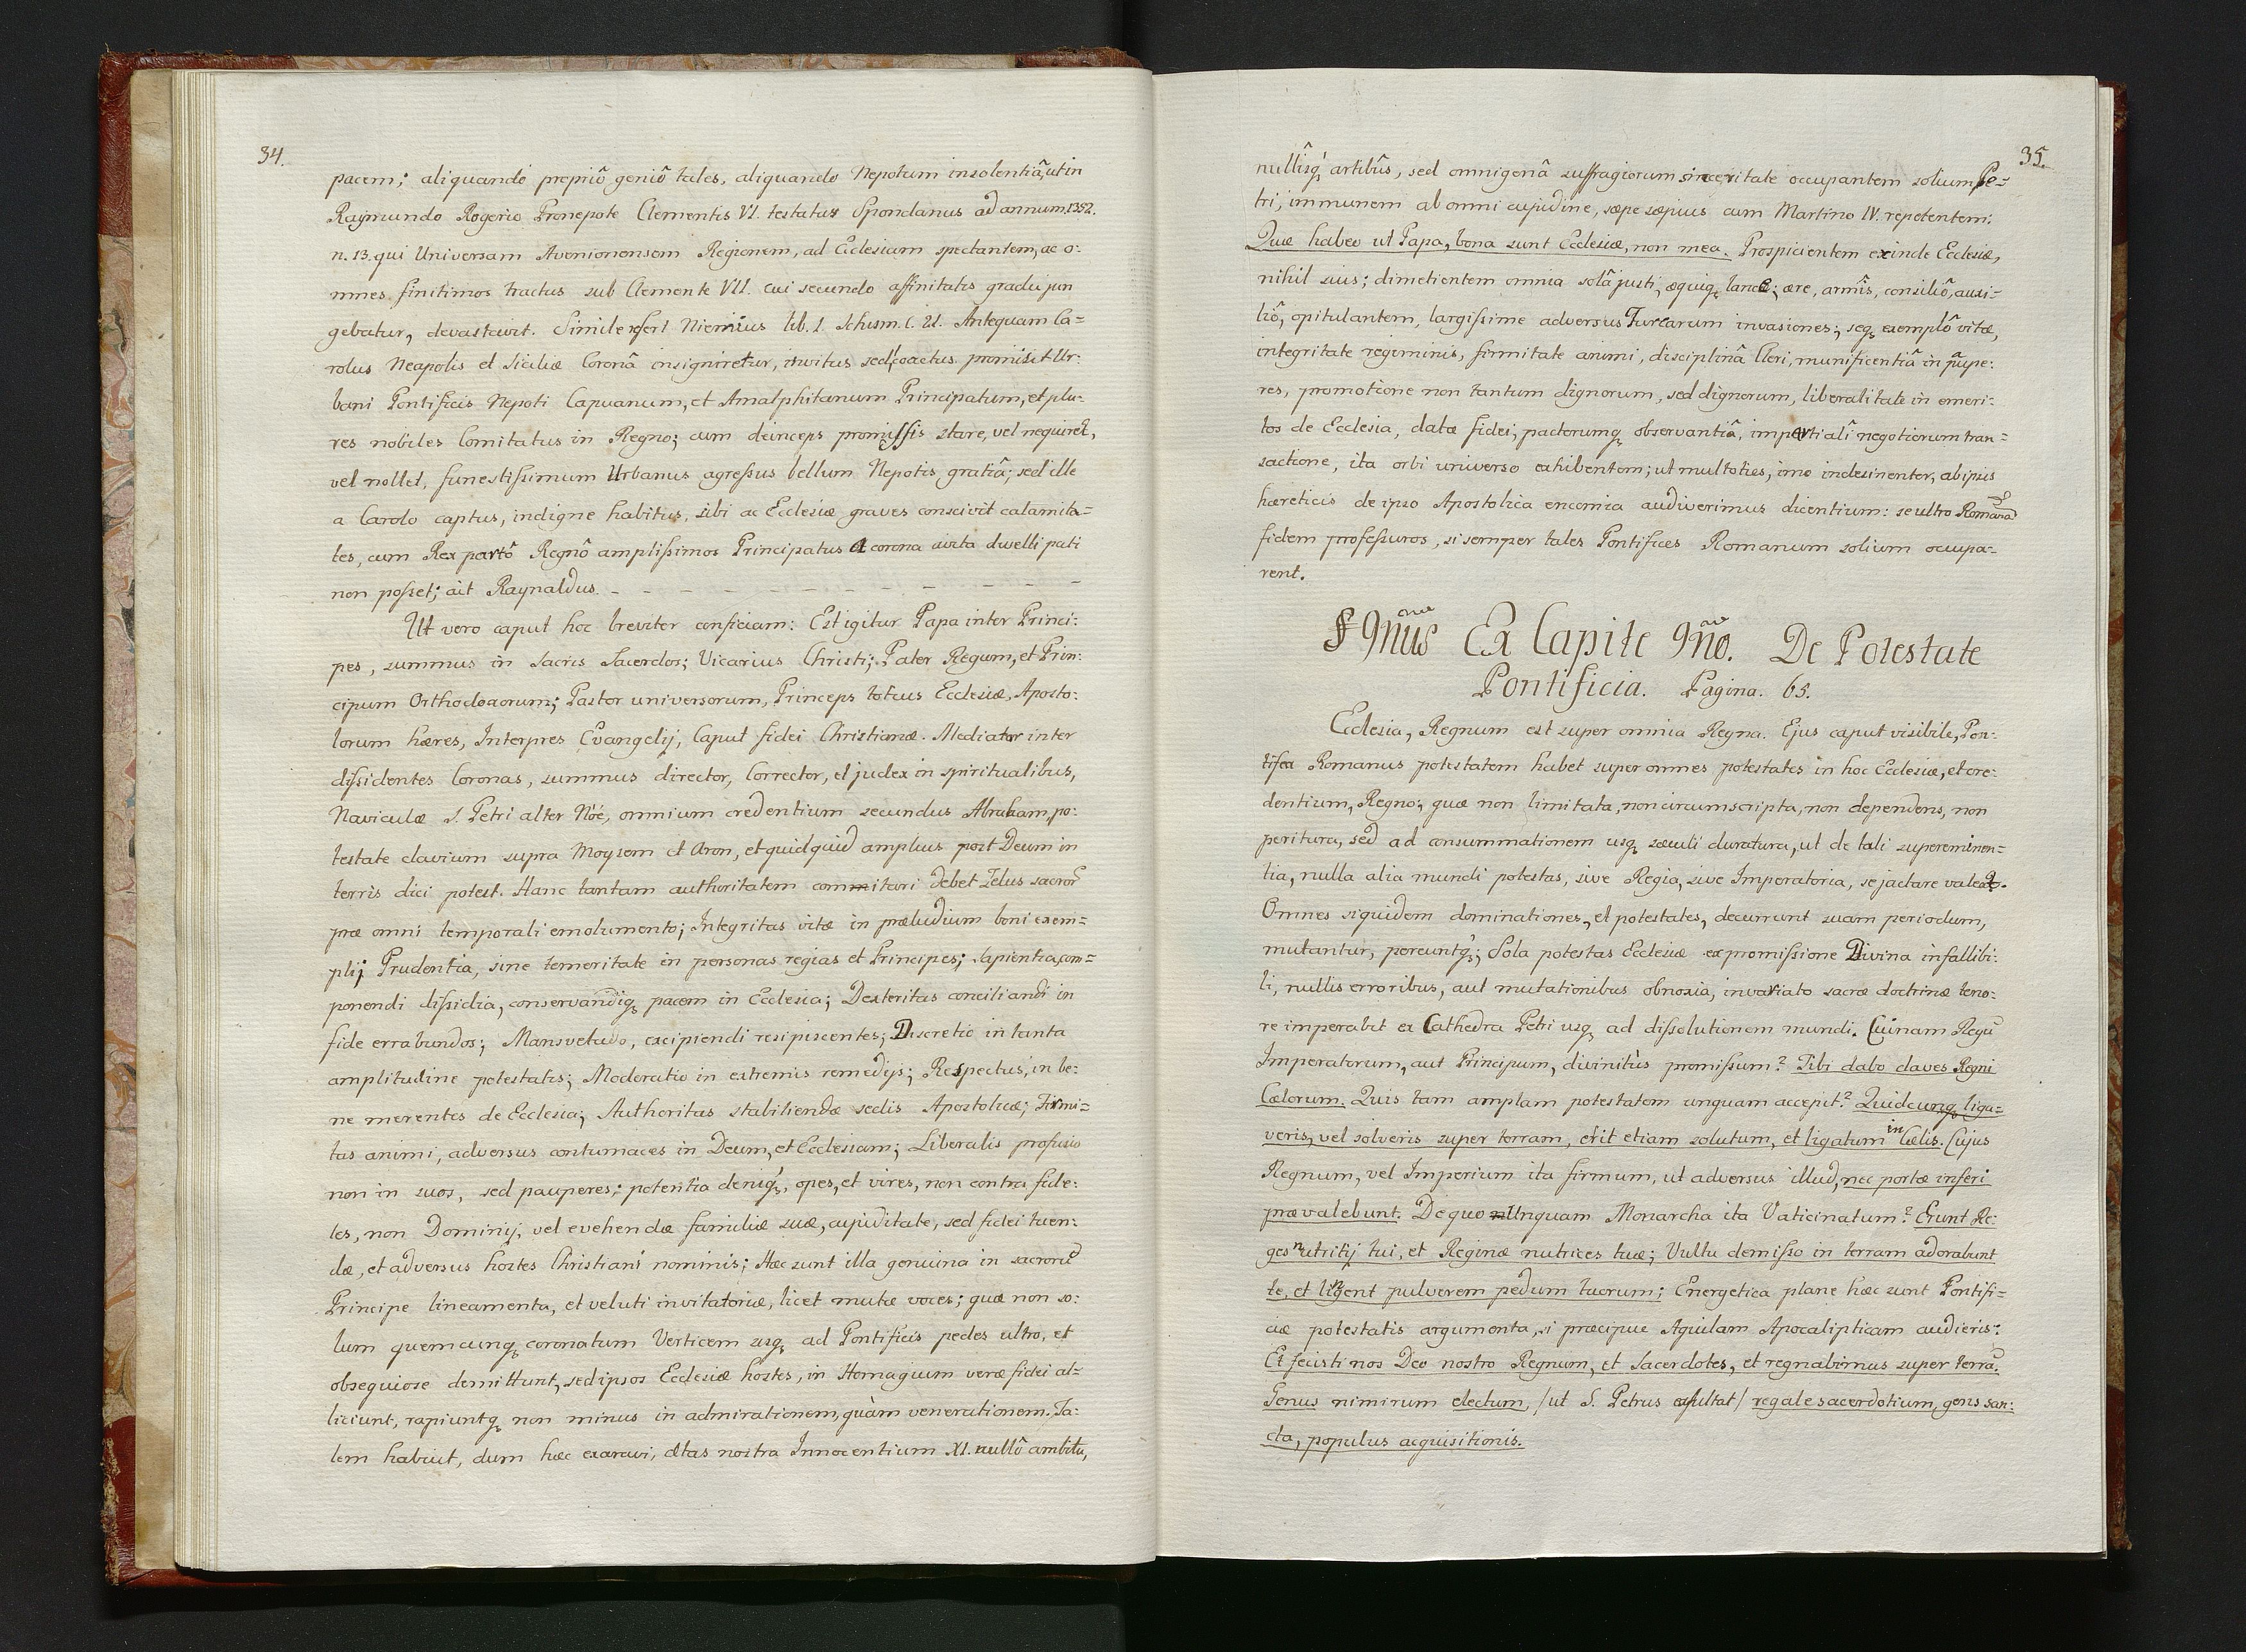 34.
pacem; aliquando propriô geniô tales, aliquando Nepotum insolentiâ, ut in
Raymundo Rogerio Pronepote Clementis VI. testatur Spondanus ad annum 1352.
n. 13. qui Universam Avenionensem Regionem, ad Ecclesiam spectantem, ac o:
mnes finitimos tractus sub Clemente VII. cui secundo affinitatis gradu jun
gebatur, devastavit. Simile refert Niemius lib. 1. Schism. C. 21. Antequam Ca=
rolus Neapolis et Siciliæ Coronâ insigniretur, invitus sed coactus promisit Ur:
bani Pontificis Nepoti Capuanum, et Amalphitanum Principatum, et plu:
res nobiles Comitatus in Regno; cum deinceps promissis stare, vel nequiret,
vel nollet, funestissimum Urbanus agressus bellum Nepotis gratiâ; sed ille
a Carolo captus, indigne habitus, sibi ac Ecclesiæ graves conscivit calamita=
tes, cum Rex partô Regnô amplissimos Principatus a corona avita divelli pati
non posset; ait Raynaldus. - - - - - - - - - - -
Ut vero caput hoc breviter conficiam: Est igitur Papa inter Princi:
pes, summus in Sacris Sacerdos; Vicarius Christi; Pater Regum, et Prin:
cipum Orthodoxorum; Pastor universorum, Princeps totius Ecclesiæ, Aposto:
lorum hæres, Interpres Evangelij, Caput fidei Christianæ. Mediator inter
dissidentes Coronas, summus director, Corrector, et judex in spiritualibus,
Naviculæ S. Petri alter Nöé, omnium credentium secundus Abraham, po:
testate clavium supra Moysem et Aron, et quidquid amplius post Deum in
terris dici potest. Hanc tantam authoritatem comitari debet Zelus sacror̃
præ omni temporali emolumento; Integritas vitæ in præludium boni exem=
plij Prudentia, sine temeritate in personas regias et Principes; Sapientia, com=
ponendi dissidia, conservandiq₃ pacem in Ecclesia; Dexteritas conciliandi in
fide errabundos; Mansvetudo, excipiendi resipiscentes; Discretio in tanta
amplitudine potestatis; Moderatio in extremis remedijs; Respectus, in be:
ne merentes de Ecclesia; Authoritas stabiliendæ sedis Apostolicæ; Firmi=
tas animi, adversus contumaces in Deum, et Ecclesiam; Liberalis profusio
non in suos, sed pauperes; potentia deniq₃, opes, et vires, non contra fide:
les, non Dominij, vel evehendæ familiæ suæ, cupiditate, sed fidei tuen:
dæ, et adversus hostes Christiani nominis; Hæc sunt illa genuina in sacrorũ
Principe lineamenta, et veluti invitatoriæ, licet mutæ voces; quæ non so:
lum quemcunq₃ coronatum Verticem usq₃ ad Pontificis pedes ultro, et
obsequiose demittunt, sed ipsos Ecclesiæ hostes, in Homagium veræ fidei al=
liciunt, rapiuntq₃ non minus in admirationem, quàm venerationem. Ta:
lem habuit, dum hæc exaravi, ætas nostra Innocentium XI. nullô ambitu,
35.
nullîsq₃ artibûs, sed omnigenâ suffragiorum sinceritate occupantem solium Pe=
tri, immunem ab omni cupidine, sæpe sæpius cum Martino IV. repetentem:
Quæ habeo ut Papa, bona sunt Ecclesiæ, non mea. Prospicientem exinde Ecclesiæ,
nihil suis; dimetientem omnia solâ justi, æquiq₃ lance; ære, armîs, consiliô, auxi=
liô, opitulantem, largissime adversus Turcarum invasiones; seq₃ exemplô vitæ,
integritate regiminis, firmitate animi, disciplinâ Cleri, munificentiâ in paupe:
res, promotione non tantum dignorum, sed dignorum, liberalitate in emeri:
tos de Ecclesia, datæ fidei, pactorumq₃ observantiâ, impartialî negotiorum tran=
sactione, ita orbi universo exhibentem; ut multoties, imo indesinenter, ab ipsis
hæreticis de ipso Apostolica encomia audiverimus dicentium: se ultro Romanã
fidem professuros, si semper tales Pontifices Romanum solium occupa=
rent.
§ 9nus Ex Capite 9no. De Potestate
Pontificia. Pagina. 65.
Ecclesia, Regnum est super omnia Regna. Ejus caput visibile, Pon:
tifex Romanus potestatem habet super omnes potestates in hoc Ecclesiæ, et cre:
dentium, Regno; quæ non limitata, non circumscripta, non dependens, non
peritura, sed ad consummationem usq₃ sæculi duratura, ut de tali supereminen=
tia, nulla alia mundi potestas, sive Regia, sive Imperatoria, se jactare valeat.
Omnes siquidem dominationes, et potestates, decurrunt suam periodum,
mutantur, pereuntq₃; Sola potestas Ecclesiæ ex promissione Divina infallibi:
li, nullis erroribus, aut mutationibus obnoxia, invariato sacræ doctrinæ teno:
re imperabit ex Cathedra Petri usq₃ ad dissolutionem mundi. Cuinam Regũ
Imperatorum, aut Principum, divinitùs promissum? Tibi dabo claves Regni
Cælorum. Quis tam amplam potestatem unquam accepit? Quidcunq₃ liga=
veris, vel solveris super terram, erit etiam solutum, et ligatum in Cælis. Cujus
Regnum, vel Imperium ita firmum, ut adversus illud, nec portæ inferi
prævalebunt. De quo unquam Monarcha ita Vaticinatum? Erunt Re:
ges nutritij tui, et Reginæ nutrices tuæ; Vultu demisso in terram adorabunt
te, et lingent pulverem pedum tuorum; Energetica plane hæc sunt Pontifi=
ciæ potestatis argumenta, si præcipue Aquilam Apocalipticam audieris:
Et fecisti nos Deo nostro Regnum, et Sacerdotes, et regnabimus super terrã.
Genus nimirum electum, /ut S. Petrus exsultat/ regale sacerdotium, gens san:
cta, populus acquisitionis.